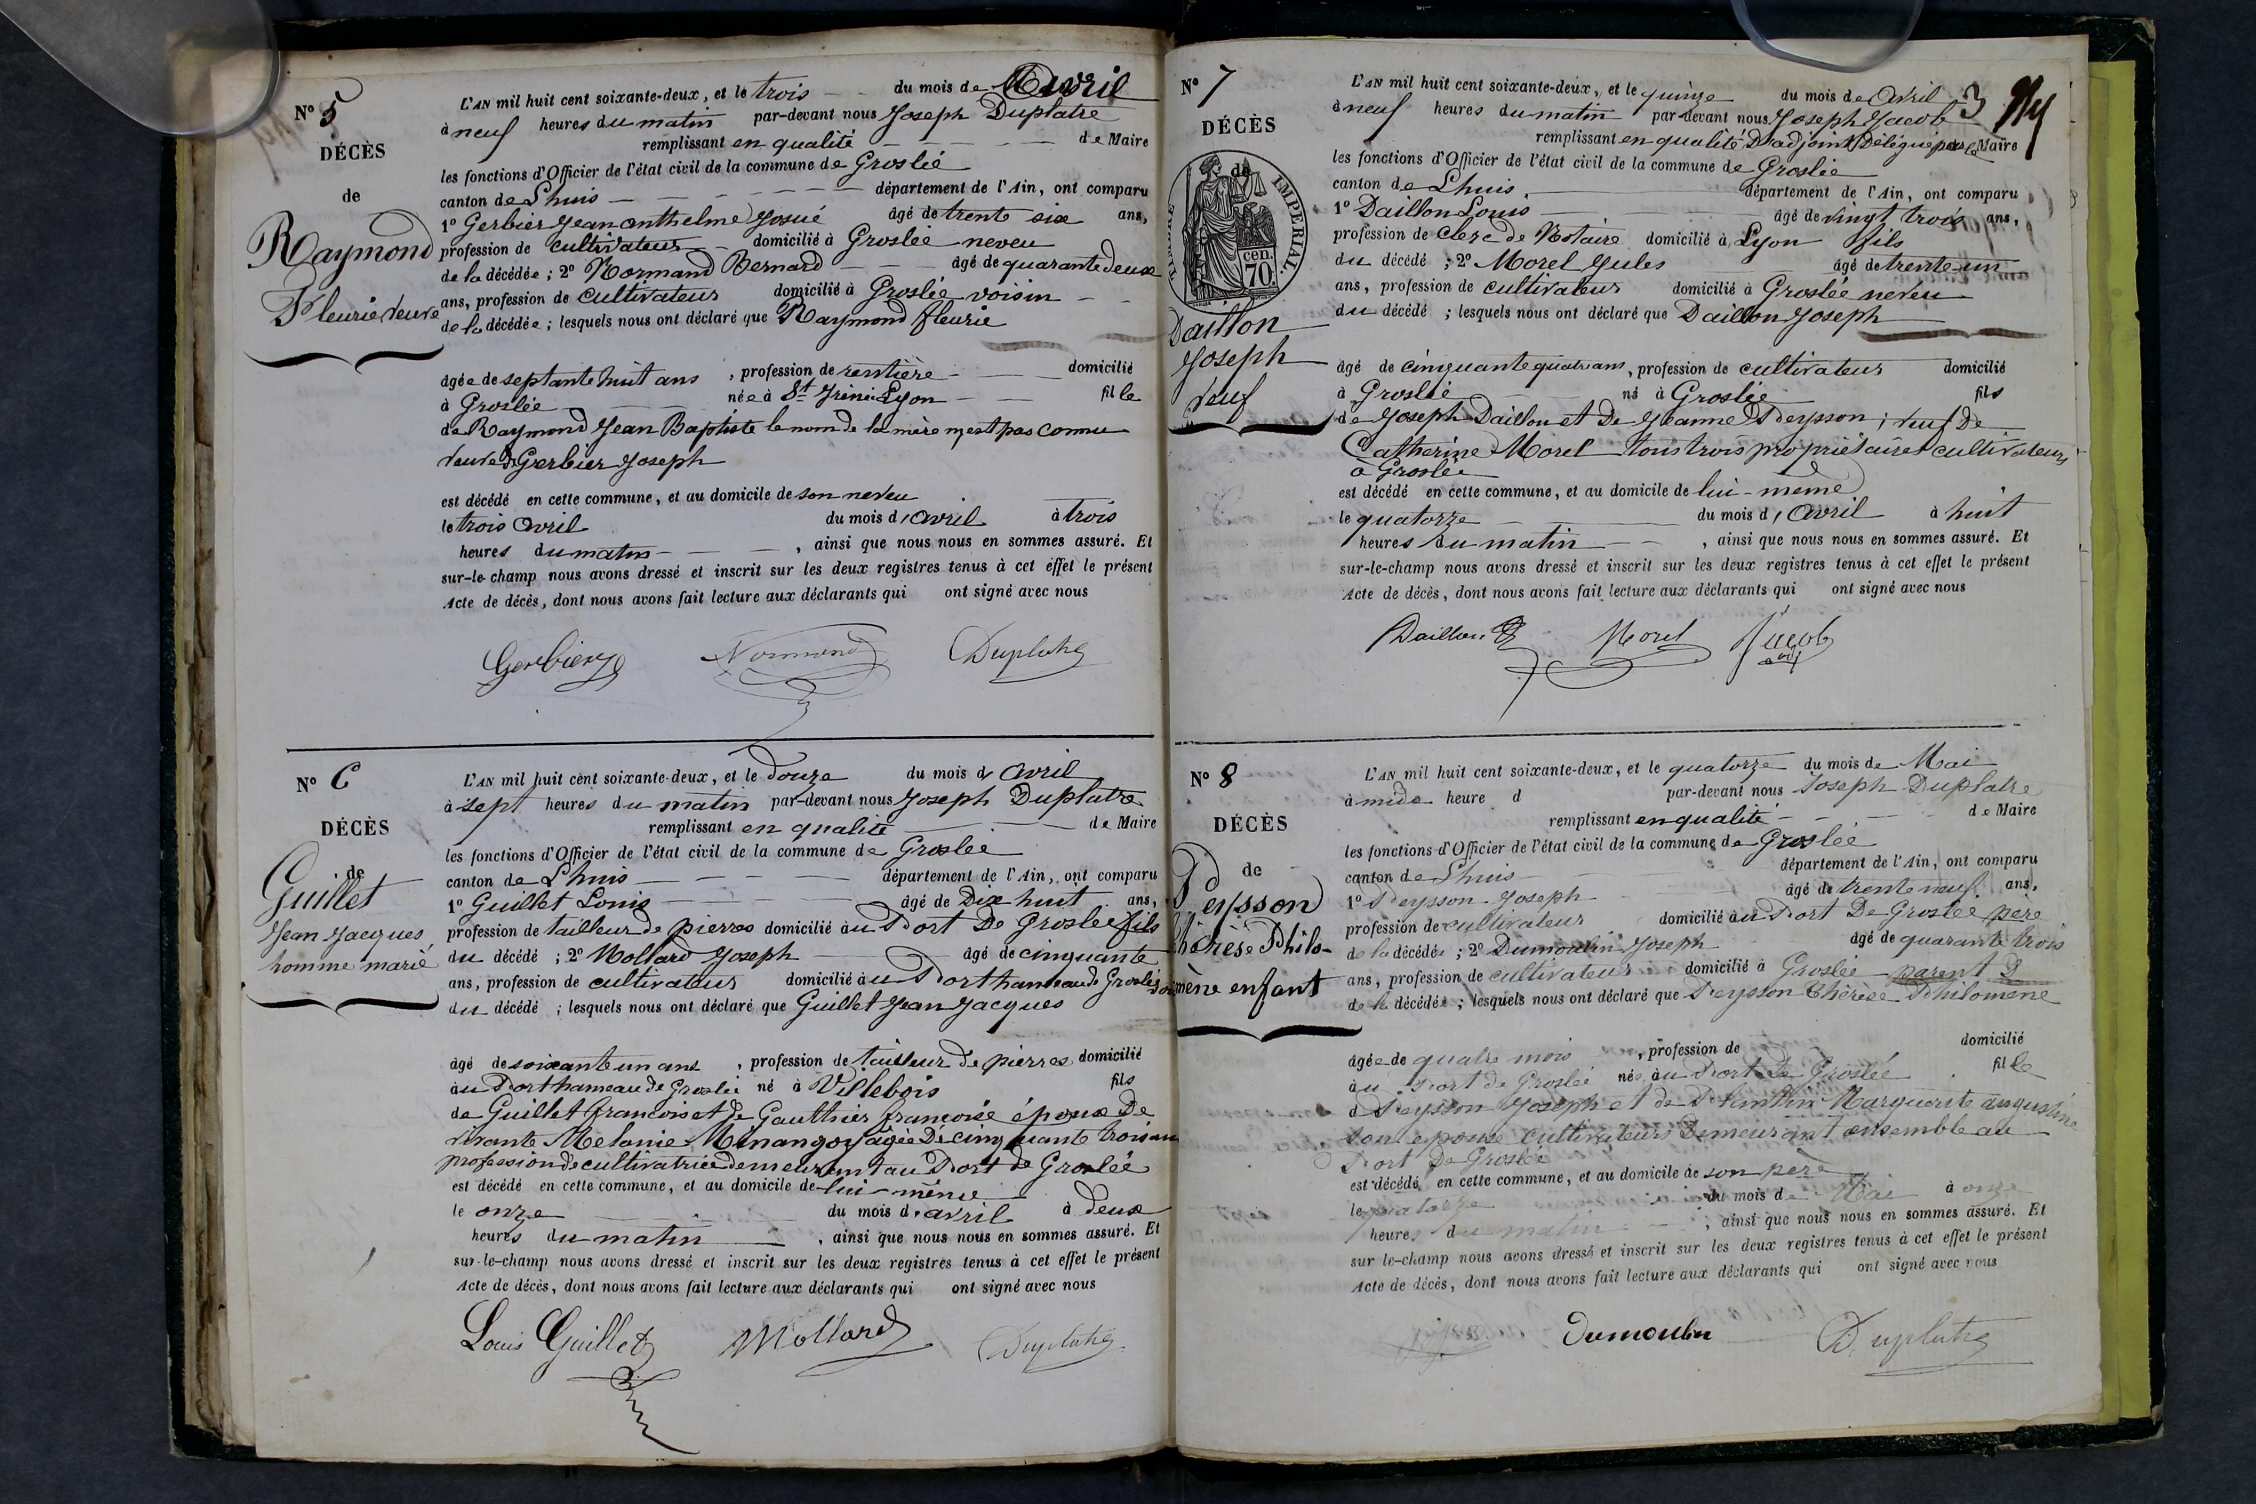 N° 5
DÉCÈS
de
Raymond
Fleurie veuve
L'AN mil huit cent soixante-deux, et le trois du mois de Avril
à neuf heures du matin par-devant nous Joseph Duplatre
remplissant en qualité de Maire
les fonctions d'Officier de l'état civil de la commune de Groslée
canton de Lhuis département de l'Ain, ont comparu
1° Gerbier Jean anthelme Josué âgé de trente six ans,
profession de cultivateur domicilié à Groslée neveu
de la décédée ; 2° Normand Bernard âgé de quarante deux
ans, profession de cultivateur domicilié à Groslée voisin
de la décédée ; lesquels nous ont déclaré que Raymond fleurie
âgée de septante huit ans , profession de rentière domicilié
à Groslée née à St Irénée Lyon fille
de Raymond Jean Baptiste le nom de la mère n'est pas connu
veuve de Gerbier Joseph
est décédé en cette commune, et au domicile de son neveu
le trois avril du mois d'avril à trois
heures du matin , ainsi que nous nous en sommes assuré. Et
sur-le-champ nous avons dressé et inscrit sur les deux registres tenus à cet effet le présent
Acte de décès, dont nous avons fait lecture aux déclarants qui ont signé avec nous
Gerbier Normand Duplatre
N° 6
DÉCÈS
de
Guillet
Jean Jacques
homme marié
L'AN mil huit cent soixante-deux, et le douze du mois d'avril
à sept heures du matin par-devant nous Joseph Duplatre
remplissant en qualité de Maire
les fonctions d'Officier de l'état civil de la commune de Groslée
canton de Lhuis département de l'Ain, ont comparu
1° Guillet Louis âgé de Dix huit ans,
profession de tailleur de pierres domicilié au Port De Groslée fils
du décédé ; 2° Mollard Joseph âgé de cinquante
ans, profession de cultivateur domicilié au Port hameau de Groslée
du décédé ; lesquels nous ont déclaré que Guillet Jean Jacques
âgé de soixante un ans , profession de tailleur de pierres domicilié
au Port hameau de Groslée né à Villebois fils
de Guillet francois et de Gauthier francoise époux De
vivante Mélanie Minangoy âgée De cinquante trois ans
profession de cultivatrice demeurant au Port de Groslée
est décédé en cette commune, et au domicile de lui-même
le onze du mois d'avril à deux
heures du matin , ainsi que nous nous en sommes assuré. Et
sur-le-champ nous avons dressé et inscrit sur les deux registres tenus à cet effet le présent
Acte de décès, dont nous avons fait lecture aux déclarants qui ont signé avec nous
Louis Guillet Mollard Duplatre
N° 7
DÉCÈS
de
IMPERIAL.
70 cen.
Daillon
Joseph
veuf
3
L'AN mil huit cent soixante-deux, et le quinze du mois de Avril
à neuf heures du matin par-devant nous Joseph Jacob
remplissant en qualité D'adjoint Délégué par le Maire
les fonctions d'Officier de l'état civil de la commune de Groslée
canton de Lhuis département de l'Ain, ont comparu
1° Daillon Louis âgé de vingt trois ans,
profession de clerc de Notaire domicilié à Lyon fils
du décédé ; 2° Morel Jules âgé de trente un
ans, profession de cultivateur domicilié à Groslée neveu
du décédé ; lesquels nous ont déclaré que Daillon Joseph
âgé de cinquante quatre ans, profession de cultivateur domicilié
à Groslée né à Groslée fils
de Joseph Daillon et De Jeanne Peysson ; veuf De
Catherine Morel tous trois propriétaires cultivateurs
à Groslée
est décédé en cette commune, et au domicile de lui-même
le quatorze du mois d'Avril à huit
heures du matin , ainsi que nous nous en sommes assuré. Et
sur-le-champ nous avons dressé et inscrit sur les deux registres tenus à cet effet le présent
Acte de décès, dont nous avons fait lecture aux déclarants qui ont signé avec nous
Daillon Morel Jacob
adj
N° 8
DÉCÈS
de
Peysson
Thérèse Philo-
mène enfant
L'AN mil huit cent soixante-deux, et le quatorze du mois de Mai
à midi heure d par-devant nous Joseph Duplatre
remplissant en qualité de Maire
les fonctions d'Officier de l'état civil de la commune de Groslée
canton de Lhuis département de l'Ain, ont comparu
1° Peysson Joseph âgé de trente neuf ans,
profession de cultivateur domicilié au Port De Groslée père
de la décédée ; 2° Dumoulin Joseph âgé de quarante trois
ans, profession de cultivateur domicilié à Groslée parent
de la décédée ; lesquels nous ont déclaré que Peysson Thérèse Philomène
âgée de quatre mois , profession de domicilié
au Port de Groslée née au Port de Groslée fille
d Peysson Joseph et de Marguerite augustine
son epouse cultivateurs Demeurant ensemble au
Port De Groslée
est décédé en cette commune, et au domicile de son père
le quatorze du mois de Mai à onze
heures du matin , ainsi que nous nous en sommes assuré. Et
sur-le-champ nous avons dressé et inscrit sur les deux registres tenus à cet effet le présent
Acte de décès, dont nous avons fait lecture aux déclarants qui ont signé avec nous
Dumoulin Duplatre